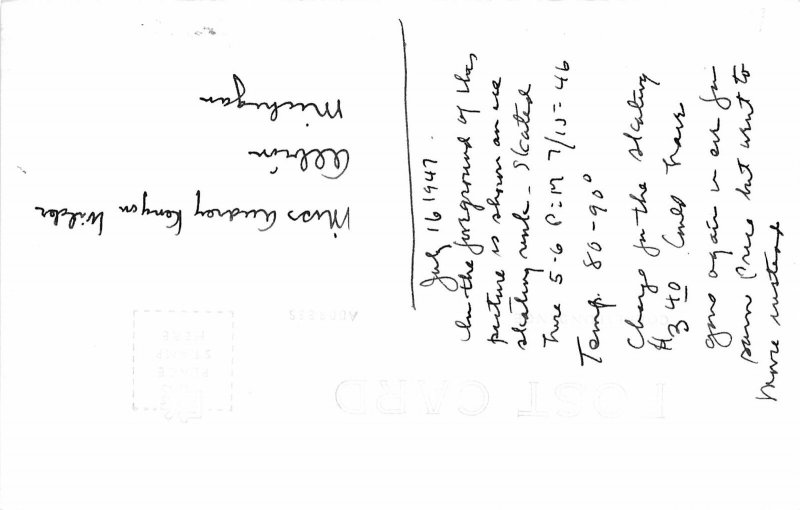 July 16 1947.
In the foreground of this
picture is shown an ice
skating rink - Skated
here 5-6 P.M 7/15-46
Temp. 80-90°
Charge for the skating
$3 40 Could have
gone again in eve for
same price but went to
movie instead
Miss Audrey Kenyon Wilder
Albion
Michigan
POST CARD
ADDRESS
PLACE
STAMP
HERE